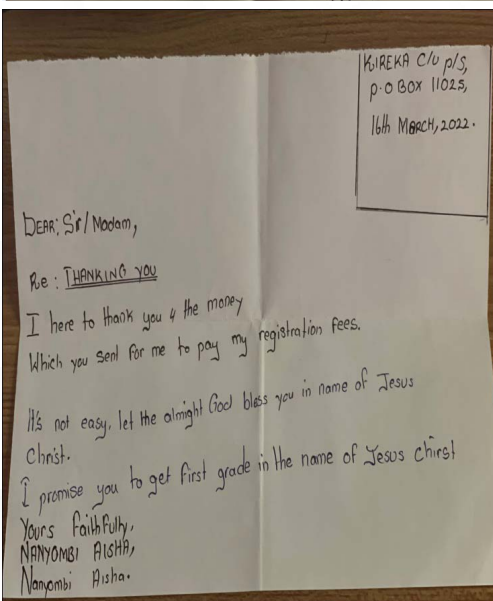 KIREKA C/U P/S,
P.O BOX 11025,
16th MARCH, 2022.
DEAR; Sir/Madam,
Re: THANKING YOU
I here to thank you 4 the money
Which you sent for me to pay my registration fees.
It's not easy, let the almight God bless you in name of Jesus
Christ.
I promise you to get first grade in the name of Jesus chirst
Yours faithfully,
NANYOMBI AISHA,
Nanyombi Aisha.